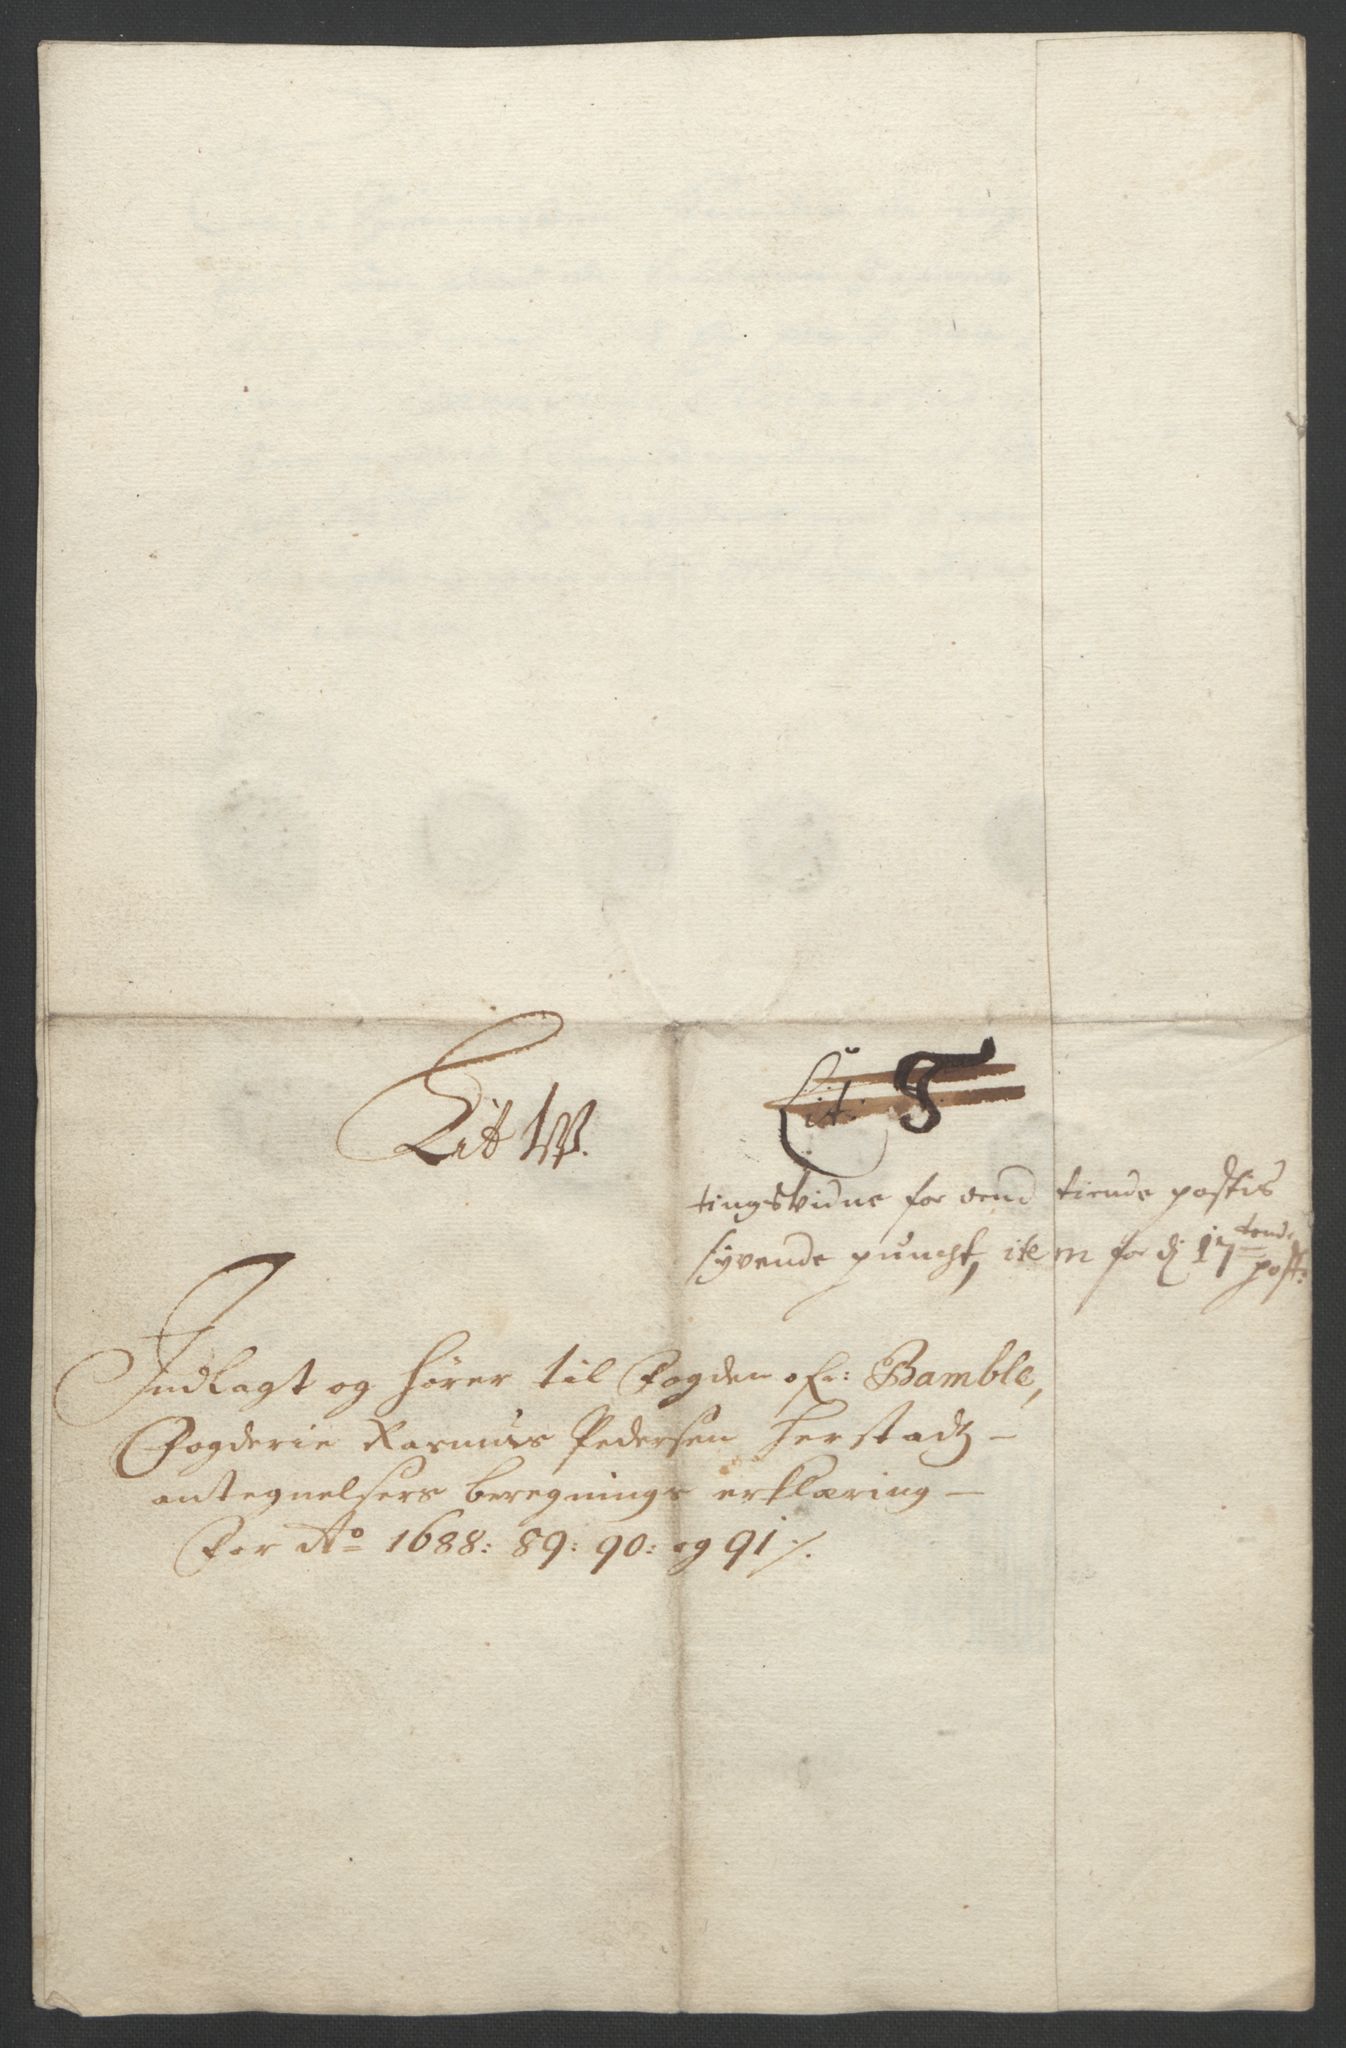 Lit W.
Lit:
tingsvidne for tiende postis
syvende puncht, item for dj 17tende post:
Indlagt og hører til Fogden ofr: Bamble,
Fogderie Rasmus Pedersen Herstadz
antegnelsers beregnings erklæring
For Ao 1688: 89: 90: og 91 ⁒